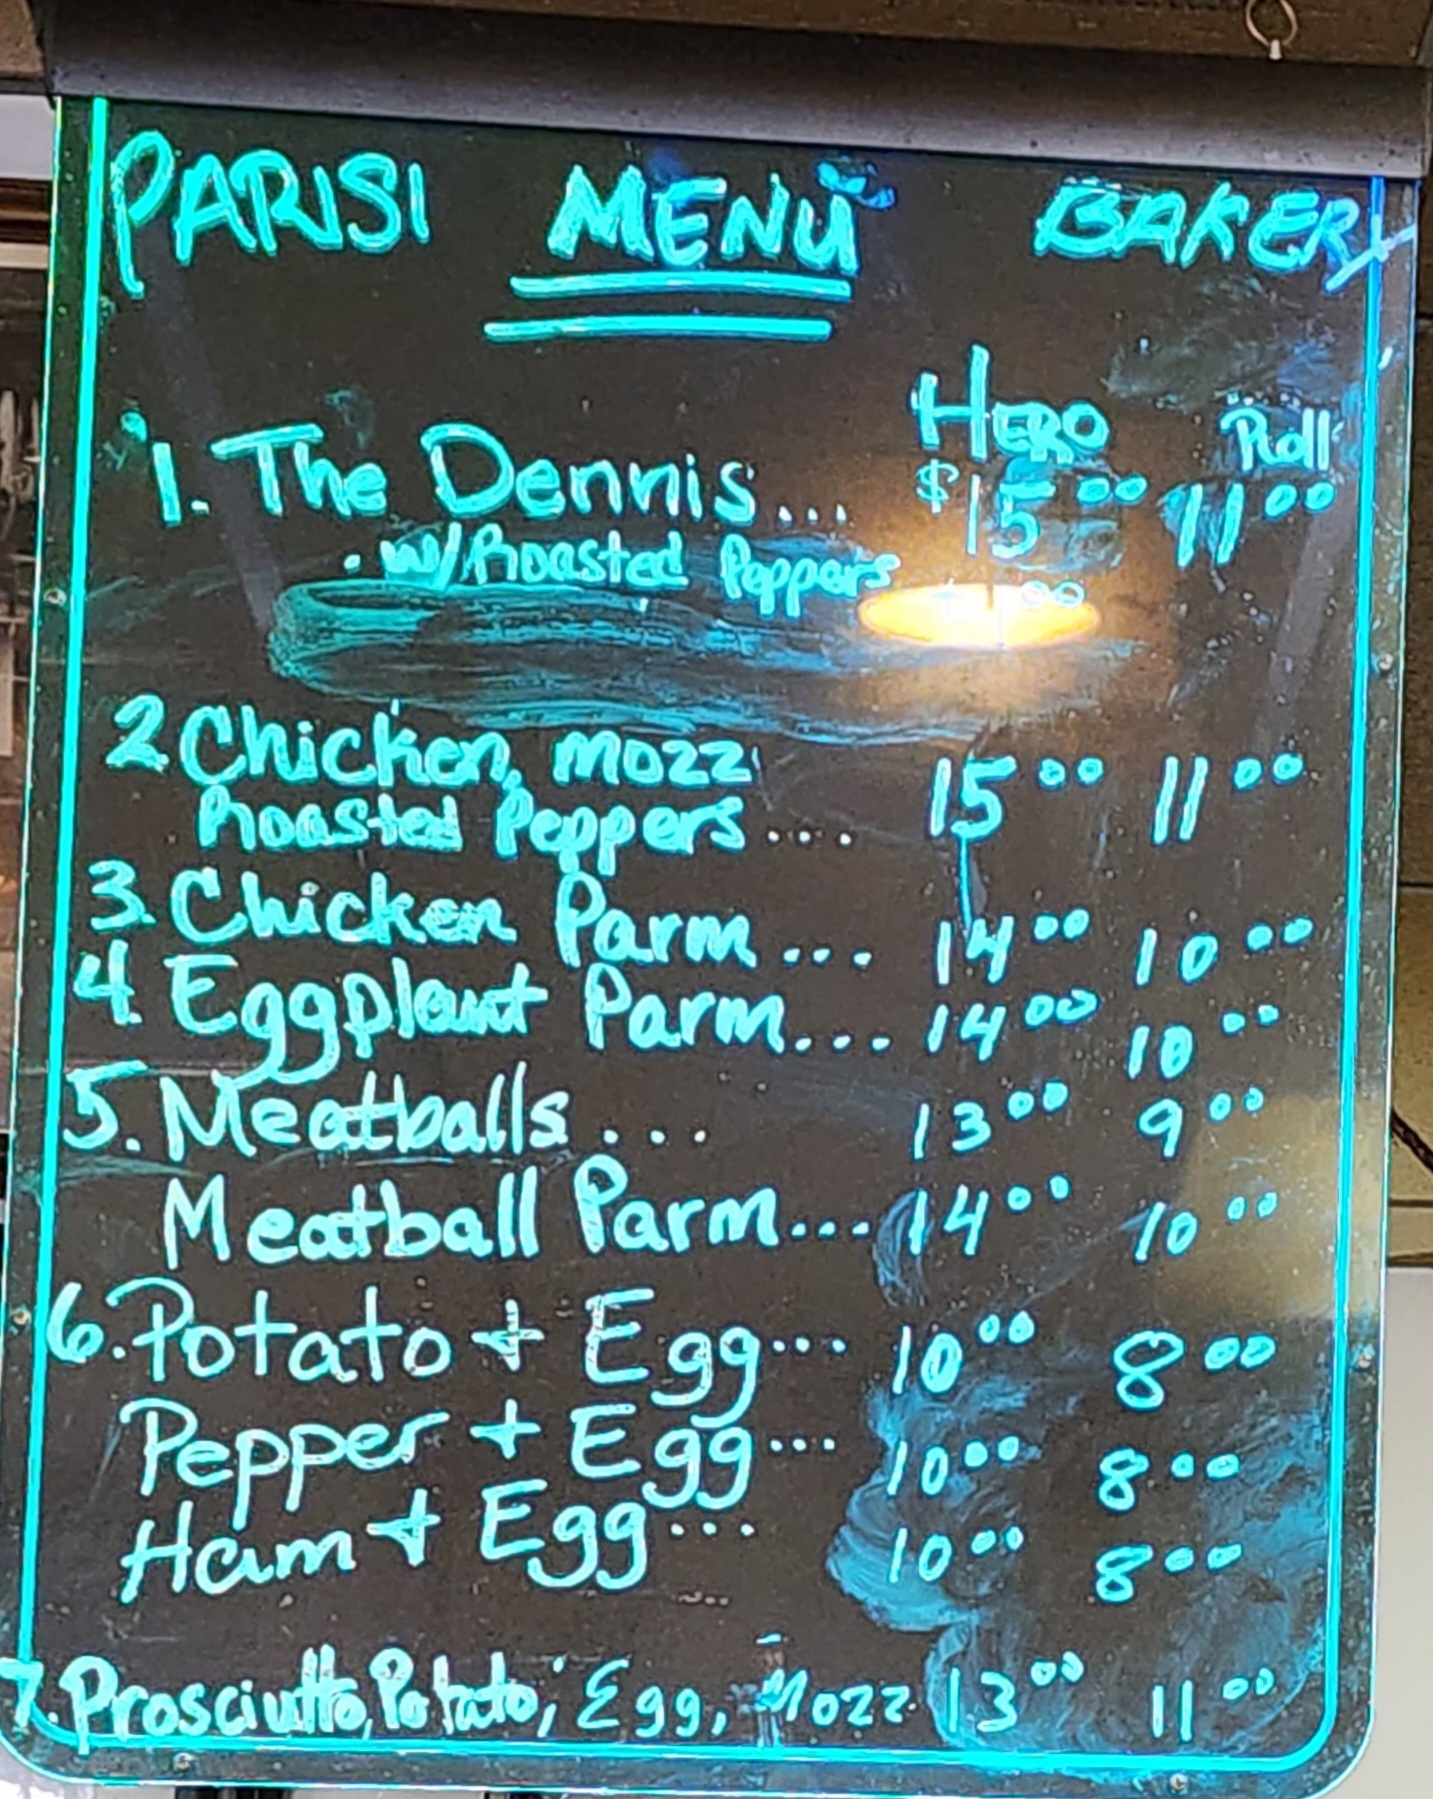 PARISI MENU BAKERY
HERO Roll
1. The Dennis... $15.00 11.00
• w/Roasted Peppers + 1.00
2 Chicken, mozz
Roasted Peppers.... 15.00 11.00
3. Chicken Parm... 14.00 10.00
4. Eggplant Parm... 14.00 10.00
5. Meatballs... 13.00 9.00
Meatball Parm... 14.00 10.00
6. Potato + Egg... 10.00 8.00
Pepper + Egg... 10.00 8.00
Ham + Egg... 10.00 8.00
7. Prosciutto, Potato, Egg, Mozz 13.00 11.00